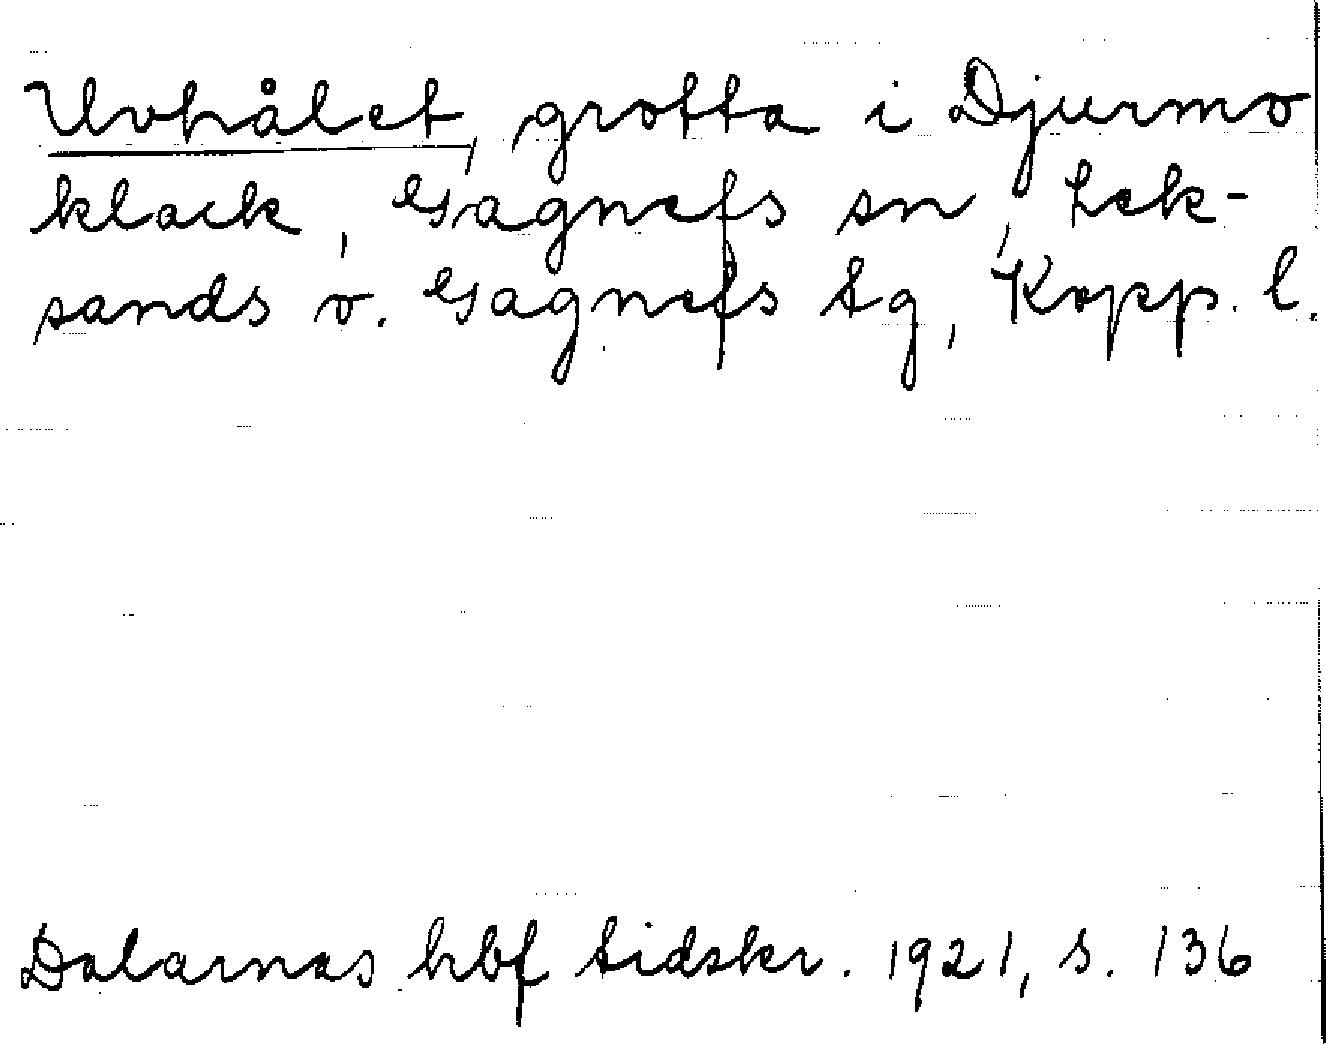 Uvhålet, grotta i Djurmo
klack, Gagnefs sn, Lek-
sands o. Gagnefs tg, Kopp. l.
Dalarnas hbf tidskr. 1921, s. 136